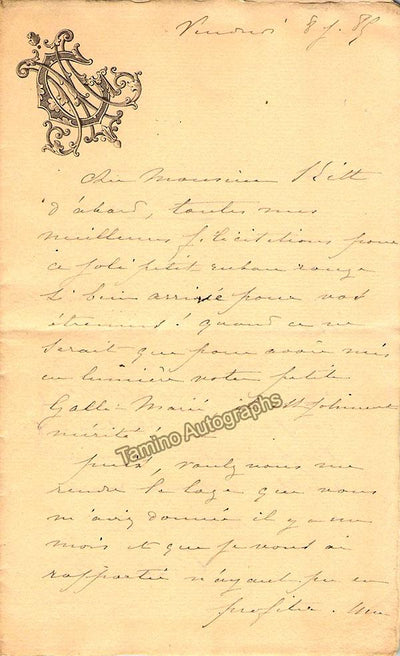 Vendredi 8 j. 85
Cher Monsieur
d'abord, toutes mes
meilleures félicitations pour
ce joli petit ruban rouge
si bien arrivé pour vos
étrennes! quand ce ne
serait que pour avoir mis
en lumière votre petite
Galli-Marié
mérité
Tamino Autographs
puis, voulez vous me
rendre la loge que vous
m'aviez donnée il y a un
mois et que je vous ai
rapportée n'ayant pu en
profiter. Une